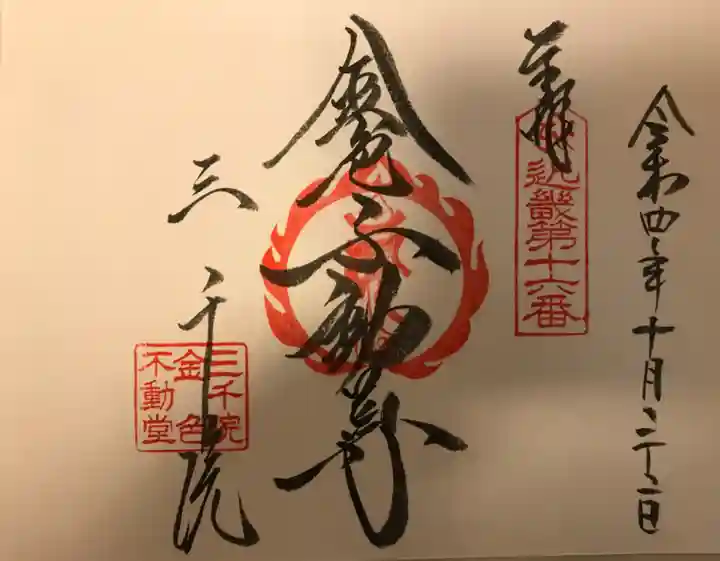 令和四年十月二十二日
奉拝
近畿第十六番
金色不動尊
三千院
三千院
金色
不動堂